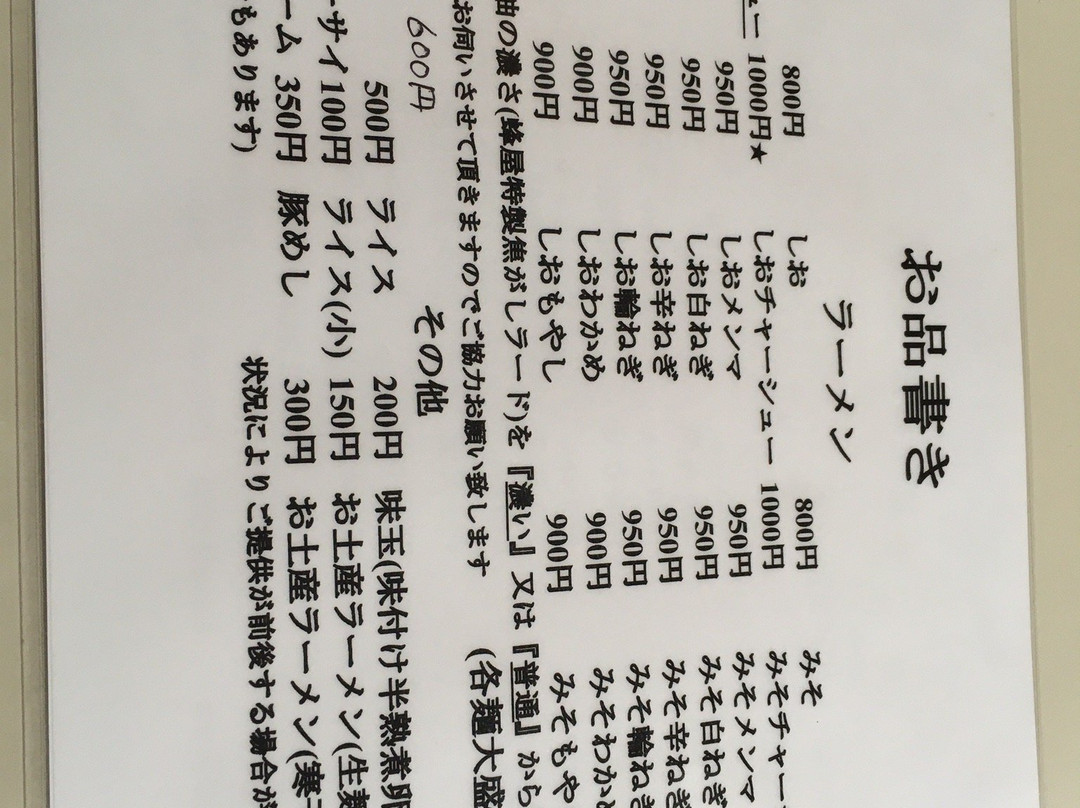 お品書き
ラーメン
800円 しお 800円 みそ
ュー 1000円★ しおチャーシュー 1000円 みそチャー
950円 しおメンマ 950円 みそメンマ
950円 しお白ねぎ 950円 みそ白ねぎ
950円 しお辛ねぎ 950円 みそ辛ねぎ
950円 しお輪ねぎ 950円 みそ輪ねぎ
900円 しおわかめ 900円 みそわかめ
900円 しおもやし 900円 みそもや
油の濃さ(蜂屋特製焦がしラード)を『濃い』又は『普通』から
お伺いさせて頂きますのでご協力お願い致します (各麺大盛
600円 その他
500円 ライス 200円 味玉(味付け半熟煮卵
ーサイ100円 ライス(小) 150円 お土産ラーメン(生麺
ーム 350円 豚めし 300円 お土産ラーメン(寒
もあります) 状況によりご提供が前後する場合が